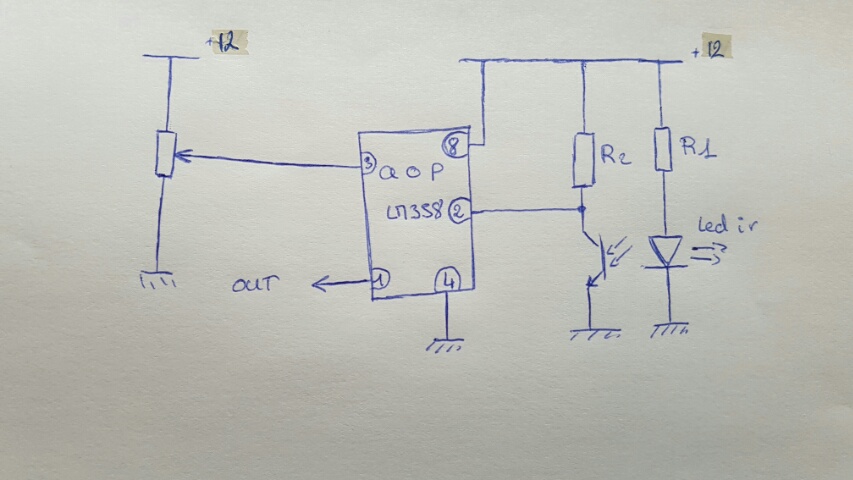 +12
+12
8
R2
R1
3
AOP
LM358
2
Led ir
OUT
1
4